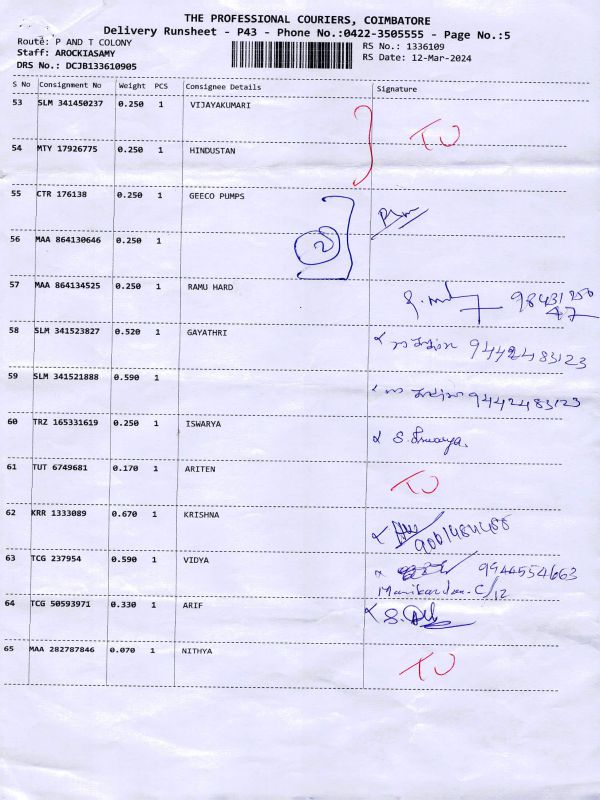 THE PROFESSIONAL COURIERS, COIMBATORE
Delivery Runsheet - P43 - Phone No.:0422-3505555 - Page No.:5
Route: P AND T COLONY
RS No.: 1336109
Staff: AROCKIASAMY
RS Date: 12-Mar-2024
DRS No.: DCJB133610905
S No Consignment No Weight PCS Consignee Details Signature
53 SLM 341450237 0.250 1 VIJAYAKUMARI
TU
54 MTY 17926775 0.250 1 HINDUSTAN
55 CTR 176138 0.250 1 GEECO PUMPS
56 MAA 864130646 0.250 1
2
57 MAA 864134525 0.250 1 RAMU HARD
98431250
47
58 SLM 341523827 0.520 1 GAYATHRI
9442483123
59 SLM 341521888 0.590 1
9442483123
60 TRZ 165331619 0.250 1 ISWARYA
S. Iswarya.
61 TUT 6749681 0.170 1 ARITEN
TU
62 KRR 1333089 0.670 1 KRISHNA
63 TCG 237954 0.590 1 VIDYA
9944554663
Manikandan-C/12
64 TCG 50593971 0.330 1 ARIF
65 MAA 282787846 0.070 1 NITHYA
TU